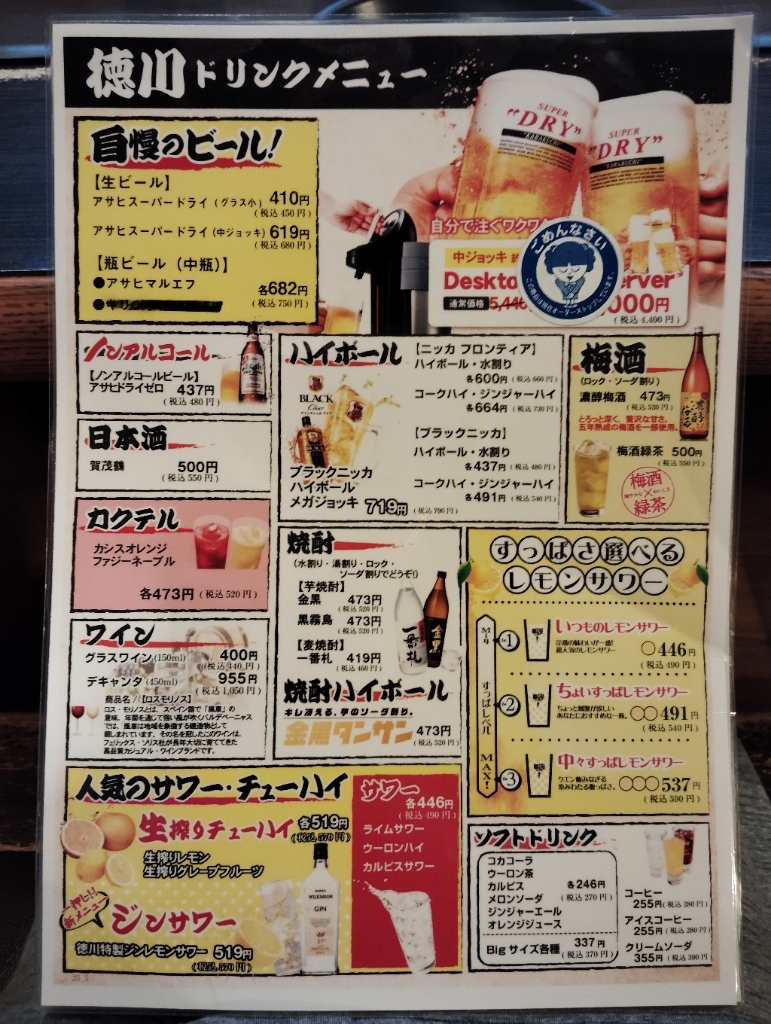 徳川ドリンクメニュー
自慢のビール!
【生ビール】
アサヒスーパードライ(グラス小) 410円
(税込450円)
アサヒスーパードライ(中ジョッキ) 619円
(税込680円)
【瓶ビール(中瓶)】
●アサヒマルエフ
各682円
(税込750円)
SUPER
"DRY"
KARAKUCHI
SUPER
"DRY"
自分で注ぐワクワク
中ジョッキ
Deskto
erver
通常価格
000円
(税込4,400円)
ごめんなさい
この商品は現在オーダーストップしています。
ノンアルコール
【ノンアルコールビール】
アサヒドライゼロ 437円
(税込480円)
日本酒
賀茂鶴 500円
(税込550円)
カクテル
カシスオレンジ
ファジーネーブル
各473円(税込520円)
ワイン
グラスワイン(150ml) 400円
(税込440円)
デキャンタ(450ml) 955円
(税込1,050円)
商品名/【ロスモリノス】
ロス・モリノスとは、スペイン語で「風車」の
意味。年間を通して強い風が吹くバルデペーニャス
では、風車は地域を象徴する建造物として
親しまれています。その名を冠したこのワインは、
フェリックス・ソリス社が長年大切に育ててきた
高品質カジュアル・ワインブランドです。
ハイボール
BLACK
Clear
ブラックニッカ
ハイボール
メガジョッキ 719円
(税込790円)
【ニッカ フロンティア】
ハイボール・水割り
各600円(税込660円)
コークハイ・ジンジャーハイ
各664円(税込730円)
【ブラックニッカ】
ハイボール・水割り
各437円(税込480円)
コークハイ・ジンジャーハイ
各491円(税込540円)
梅酒
(ロック・ソーダ割り)
濃醇梅酒 473円
(税込520円)
とろっと深く、贅沢な甘さ。
五年熟成の梅酒を一部使用。
梅酒緑茶 500円
(税込550円)
梅酒
×
緑茶
焼酎
(水割り・湯割り・ロック・
ソーダ割りでどうぞ!)
【芋焼酎】
金黒 473円
(税込520円)
黒霧島 473円
(税込520円)
【麦焼酎】
一番札 419円
(税込460円)
一番札
金黒
焼酎ハイボール
キレ冴える、芋のソーダ割り。
金黒タンサン 473円
(税込520円)
すっぱさ選べる
レモンサワー
すっぱレベル
MAX!
1
いつものレモンサワー
定番の味わいが一番!
超人気のレモンサワー
○446円
(税込490円)
2
ちょいすっぱレモンサワー
ちょっと刺激が欲しい
あなたにおすすめな一杯。
○○491円
(税込540円)
3
中々すっぱレモンサワー
クエン酸みなぎる
染みわたる酸っぱさ。
○○○537円
(税込590円)
人気のサワー・チューハイ
生搾りチューハイ 各519円
(税込570円)
生搾りレモン
生搾りグレープフルーツ
一押し!!
新メニュー
ジンサワー
徳川特製ジンレモンサワー 519円
(税込570円)
WILKINSON
GIN
サワー
各446円
(税込490円)
ライムサワー
ウーロンハイ
カルピスサワー
ソフトドリンク
コカコーラ
ウーロン茶
カルピス
メロンソーダ
ジンジャーエール
オレンジジュース
各246円
(税込270円)
Bigサイズ各種 337円
(税込370円)
コーヒー
255円(税込280円)
アイスコーヒー
255円(税込280円)
クリームソーダ
355円(税込390円)